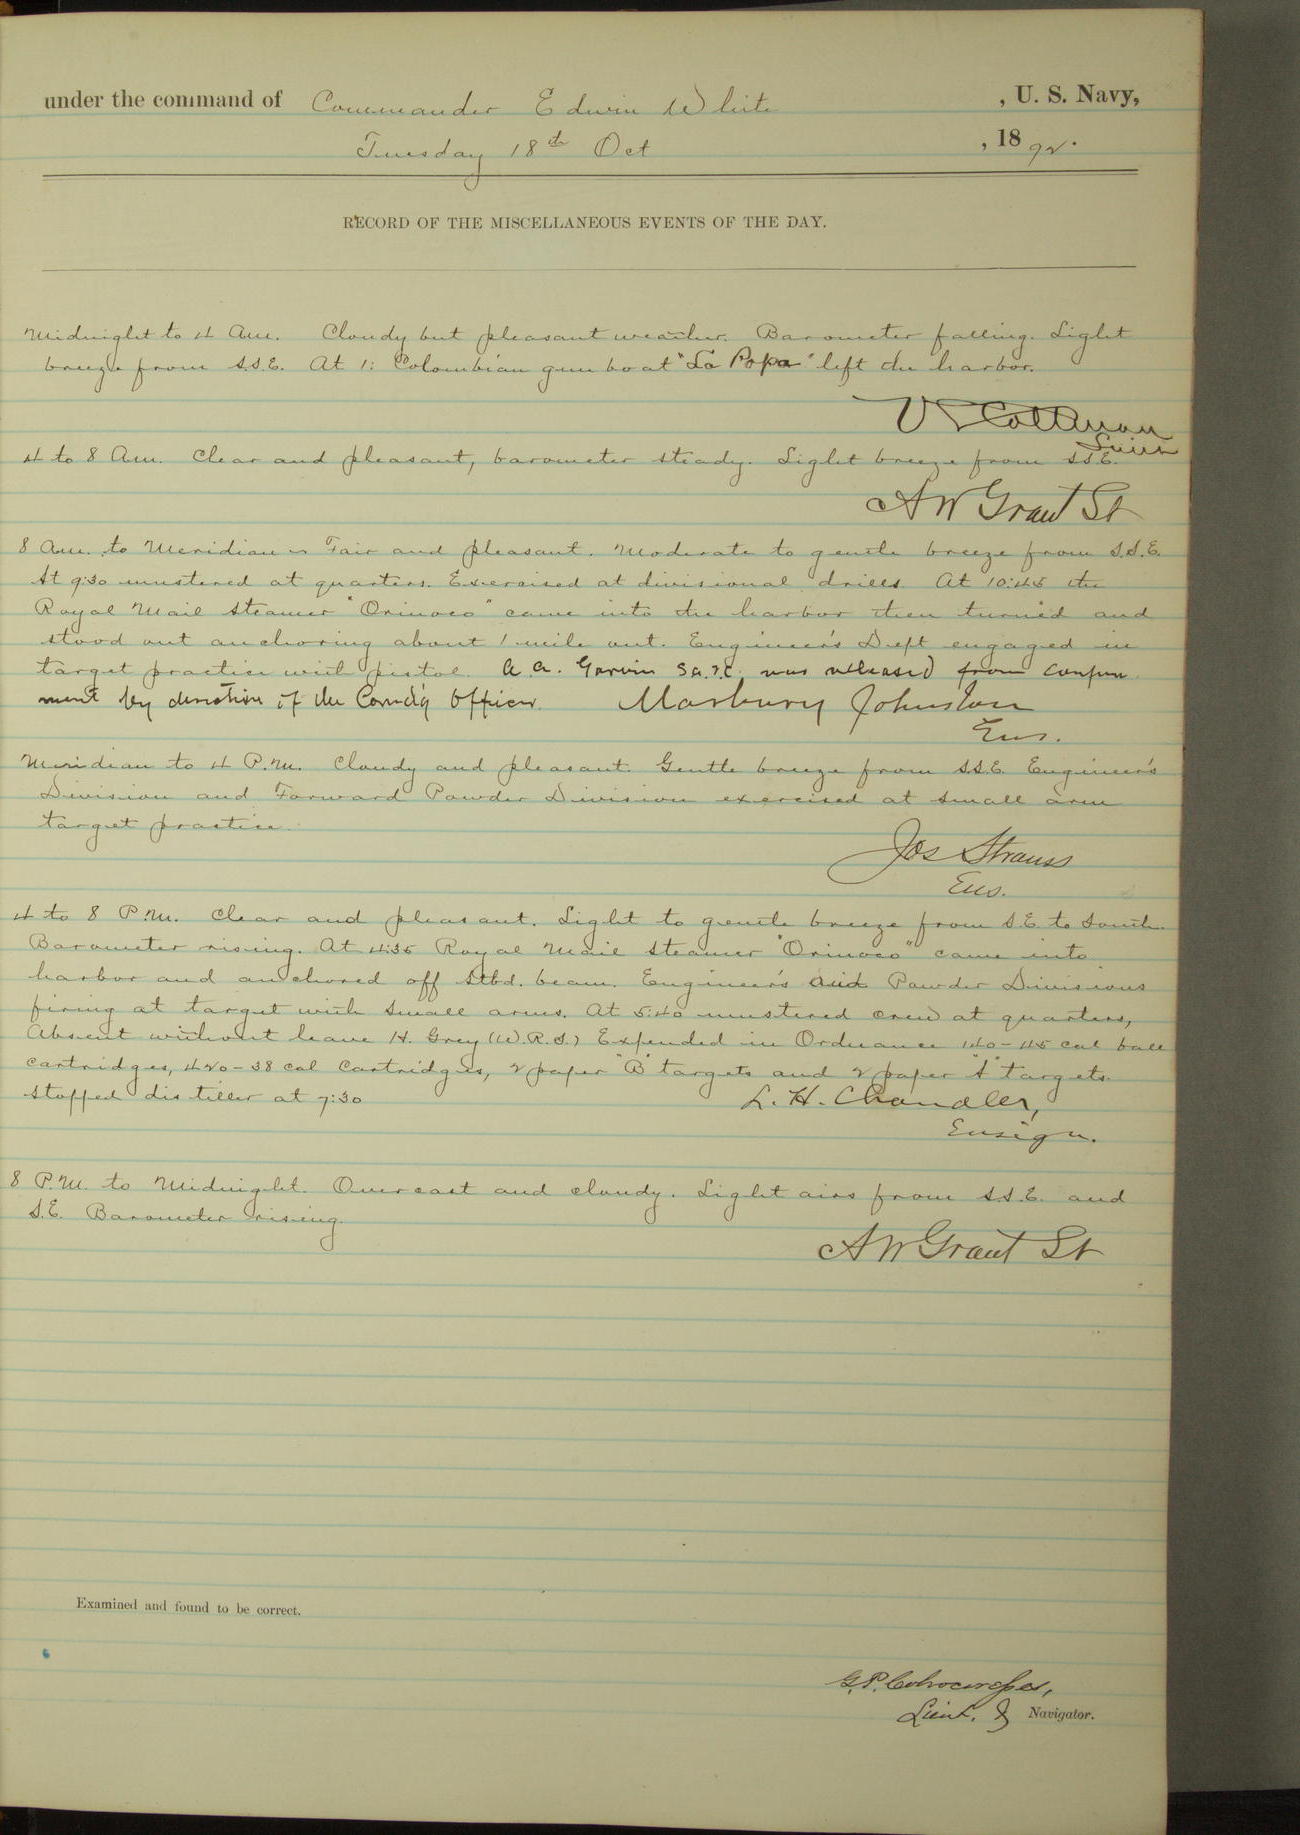 under the command of Commander Edwin White , U. S. Navy,
Tuesday 18th Oct , 1892.
RECORD OF THE MISCELLANEOUS EVENTS OF THE DAY.
Midnight to 4 Am. Cloudy but pleasant weather. Barometer falling. Light
breeze from S.S.E. At 1: Colombian gun boat "La Popa" left the harbor.
Lieut
4 to 8 Am. Clear and pleasant, barometer steady. Light breeze from S.S.E.
A W Grant Lt
8 Am. to Meridian - Fair and pleasant. Moderate to gentle breeze from S.S.E.
At 9:30 mustered at quarters. Exercised at divisional drills. At 10:45 the
Royal Mail Steamer "Orinoco" came into the harbor then turned and
stood out anchoring about 1 mile out. Engineer's Dept engaged in
target practice with pistol. A. A. Garvin was released from confine
ment by direction of the Comd'g Officer. Marbury Johnston
Ens.
Meridian to 4 P.M. Cloudy and pleasant. Gentle breeze from S.S.E. Engineer's
Division and Forward Powder Division exercised at small arm
target practice.
Jos Strauss
Ens.
4 to 8 P.M. Clear and pleasant. Light to gentle breeze from S.E. to South.
Barometer rising. At 4:35 Royal Mail Steamer "Orinoco" came into
harbor and anchored off Stbd. beam. Engineer's and Powder Divisions
firing at target with small arms. At 5:40 mustered crew at quarters,
Absent without leave H. Grey (W.R.S.) Expended in Ordnance 140-45 cal ball
cartridges, 420-38 cal Cartridges, 2 paper "B" targets and 2 paper "A" targets.
Stopped distiller at 7:30
L. H. Chandler,
Ensign.
8 P.M. to Midnight. Overcast and cloudy. Light airs from S.S.E. and
S.E. Barometer rising.
A W Grant Lt
Examined and found to be correct.
G. P. Colvocoresses,
Lieut. & Navigator.